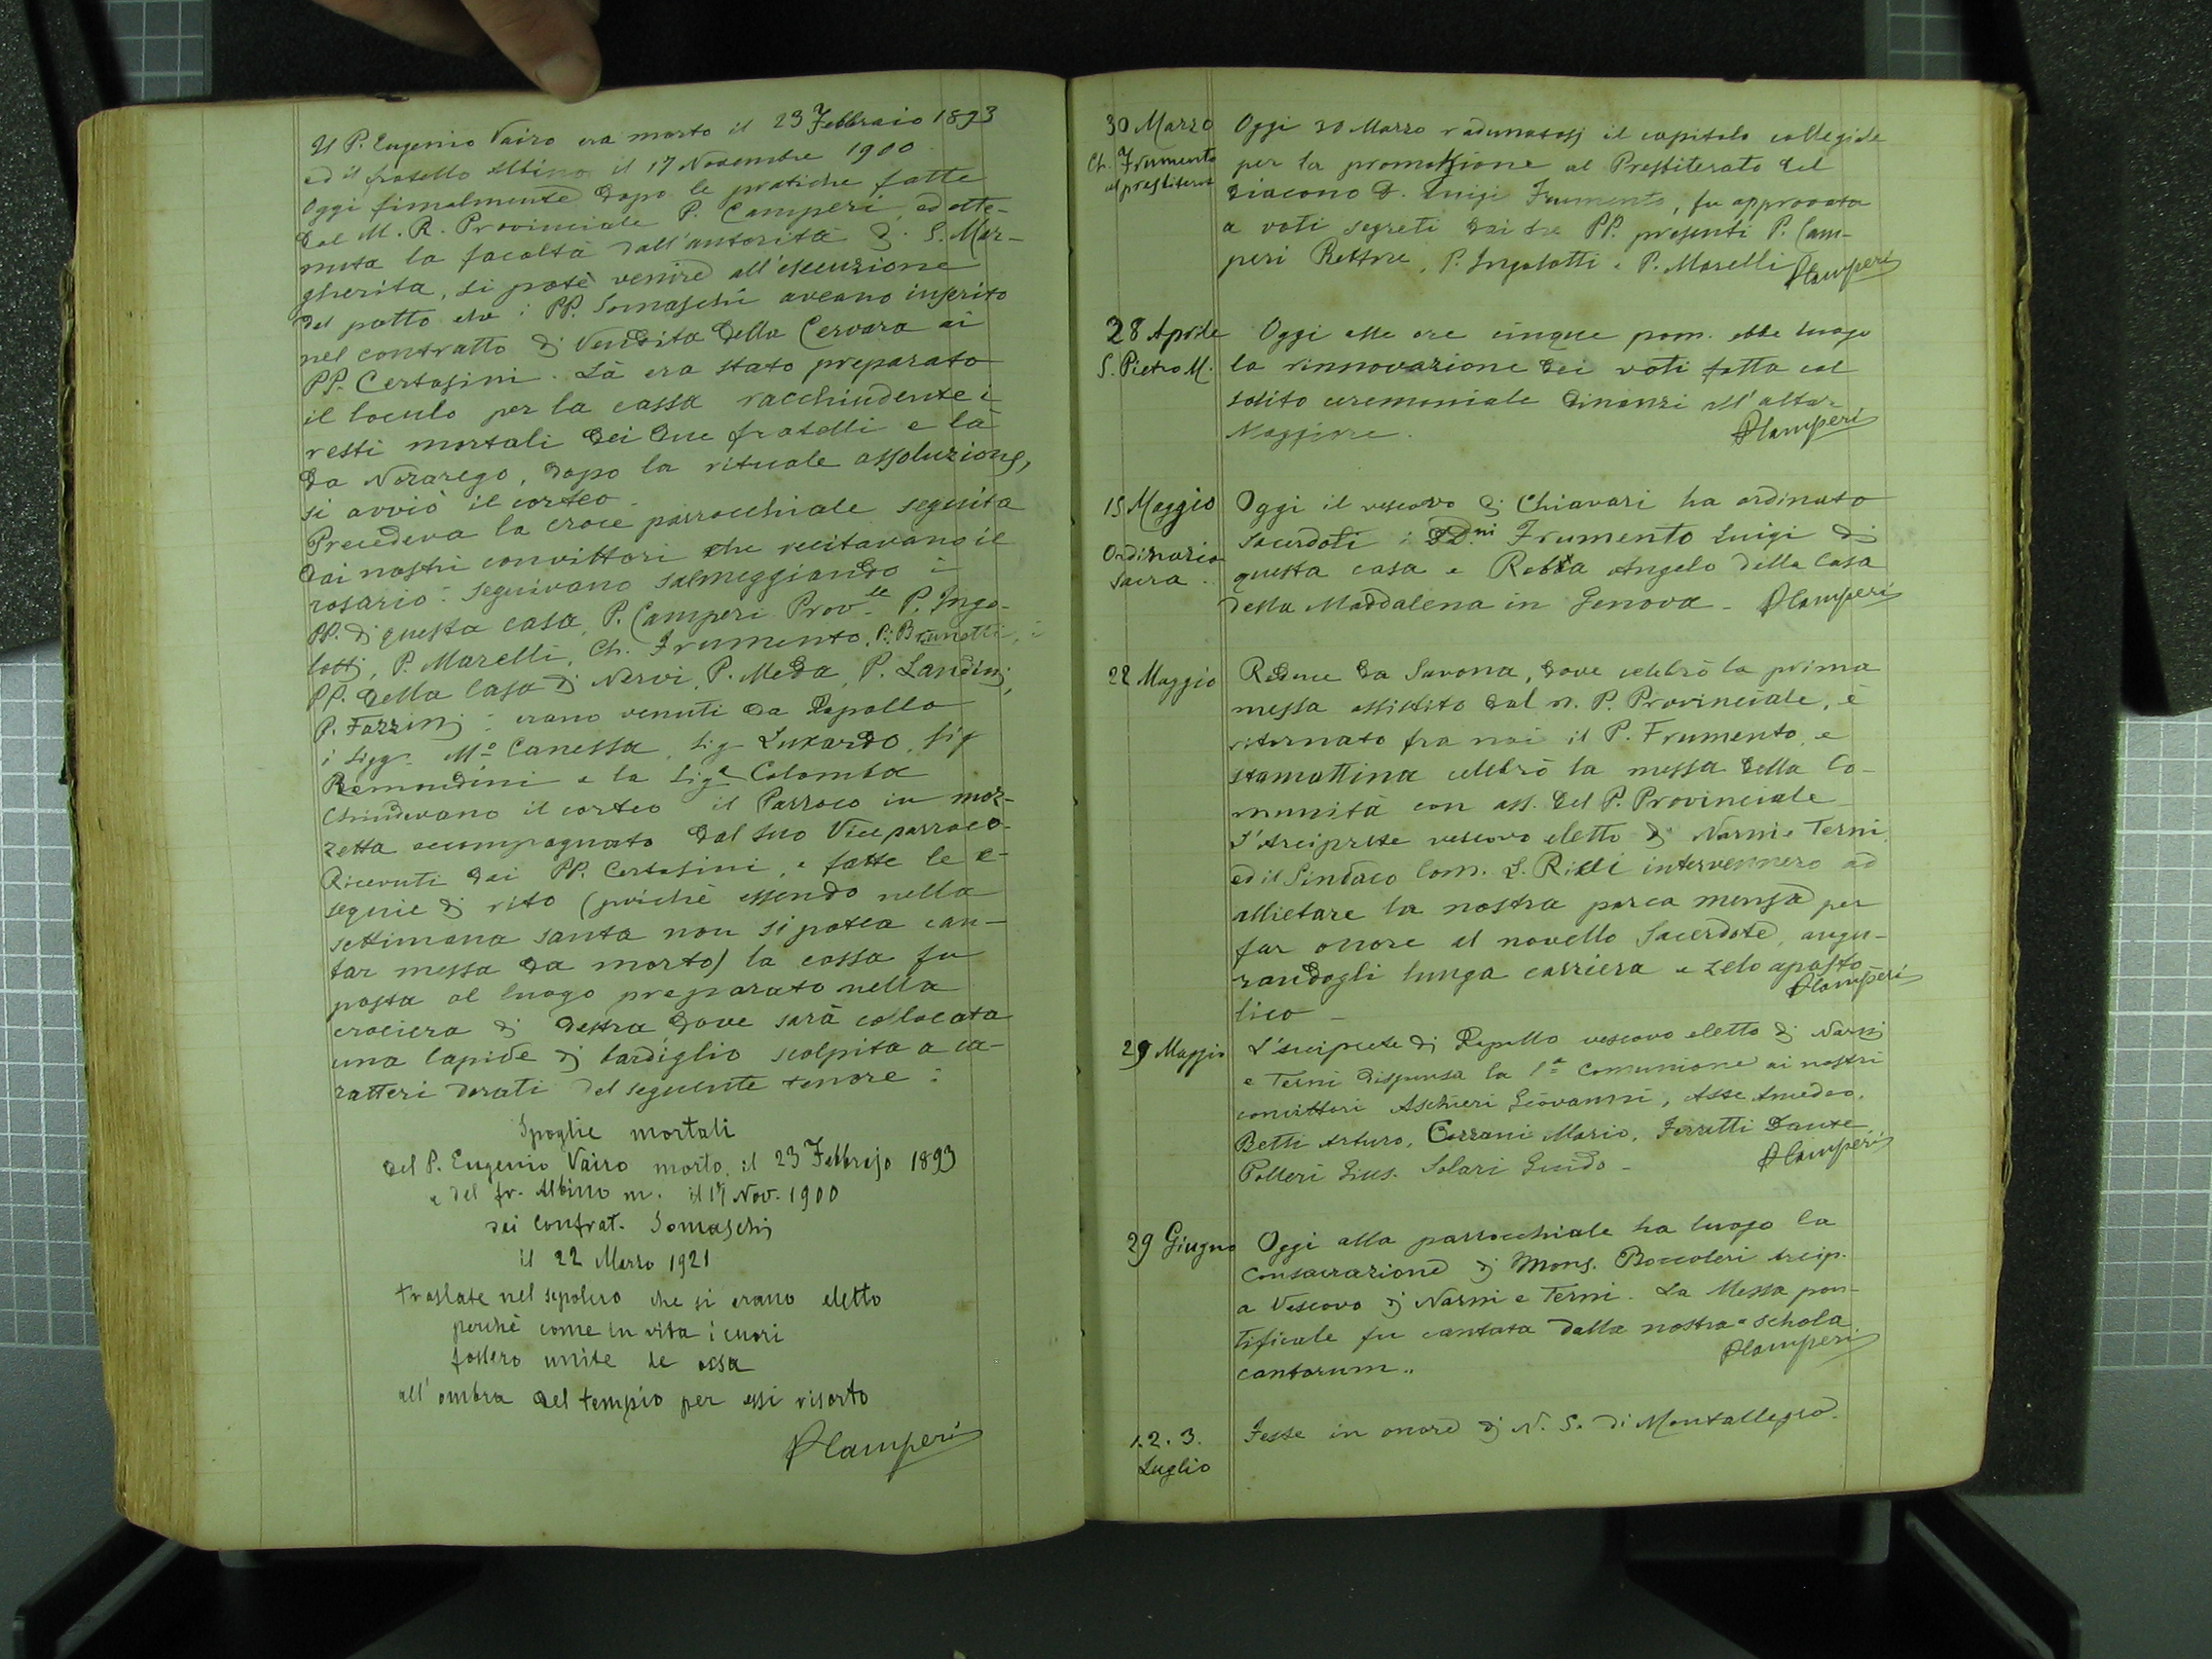 Il P. Eugenio Vairo era morto il 23 Febbraio 1893
ed il fratello Albino il 17 Novembre 1900
Oggi finalmente dopo le pratiche fatte
dal M. R. Provinciale P. Camperi, ed otte-
nuta la facoltà dall'autorità di S. Mar-
gherita, si potè venire all'esecuzione
del patto che i PP. Somaschi aveano inserito
nel contratto di vendita della Cervara ai
PP. Certosini. Là era stato preparato
il loculo per la cassa racchiudente i
resti mortali dei due fratelli e là
da Nozarego, dopo la rituale assoluzione,
si avviò il corteo -
Precedeva la croce parrocchiale seguita
dai nostri convittori che recitavano il
rosario: seguivano salmeggiando i
PP. di questa casa, P. Camperi Prov.le P. Ingo-
lotti, P. Marelli, Ch. Frumento, P. Brunetti, i
PP. della Casa di Nervi, P. Meda, P. Landini,
P. Fazzini: erano venuti da Rapallo
i Sigg. M.o Canessa, Sig. Luxardo, Sig
Remondini e la Sig.a Colomba
Chiudevano il corteo il Parroco in moz-
zetta accompagnato dal suo Viceparroco-
Ricevuti dai PP. Certosini, e fatte le e-
sequie di rito (poichè essendo nella
settimana santa non si potea can-
tar messa da morto) la cassa fu
posta al luogo preparato nella
crociera di destra dove sarà collocata
una lapide di bardiglio scolpita a ca-
ratteri dorati del seguente tenore:
Spoglie mortali
del P. Eugenio Vairo morto il 23 Febbrajo 1893
e del fr. Albino m. il 17 Nov. 1900
dei Confrat. Somaschi
il 22 Marzo 1921
traslate nel sepolcro che si erano eletto
perchè come in vita i cuori
fossero unite le ossa
all'ombra del tempio per essi risorto
PCamperi
30 Marzo
Ch. Frumento
al presbiterat
Oggi 30 Marzo radunatosi il capitolo collegiale
per la promozione al Presbiterato del
diacono D. Luigi Frumento, fu approvata
a voti segreti dai tre PP. presenti P. Cam-
peri Rettore, P. Ingolotti e P. Marelli PCamperi
28 Aprile
S. Pietro M.
Oggi alle ore cinque pom. ebbe luogo
la rinnovazione dei voti fatta col
solito ceremoniale dinanzi all'altar
Maggiore. PCamperi
15 Maggio
Ordinazio
sacra.
Oggi il vescovo di Chiavari ha ordinato
sacerdoti i DD.ni Frumento Luigi di
questa casa e Rebba Angelo della Casa
della Maddalena in Genova - PCamperi
22 Maggio
Reduce da Savona, dove celebrò la prima
messa assistito dal n. P. Provinciale, è
ritornato fra noi il P. Frumento, e
stamattina celebrò la messa della Co-
munità con ass. del P. Provinciale -
L'Arciprete vescovo eletto di Narni e Terni
ed il Sindaco Com. L. Ricci intervennero ad
allietare la nostra parca mensa per
far onore al novello Sacerdote, augu-
randogli lunga carriera e zelo aposto-
lico - PCamperi
29 Maggio
L'arciprete di Rapallo vescovo eletto di Narni
e Terni dispensa la 1.a Comunione ai nostri
convittori Aschieri Giovanni, Asse Amedeo,
Betti Arturo, Corrani Mario, Ferretti Dante
Polleri Gius. Solari Guido - PCamperi
29 Giugno
Oggi alla parrocchiale ha luogo la
consacrazione di Mons. Boccoleri Arcip.
a Vescovo di Narni e Terni. La Messa pon-
tificale fu cantata dalla nostra "schola
cantorum". PCamperi
1. 2. 3.
Luglio
Feste in onore di N. S. di Montallegro.